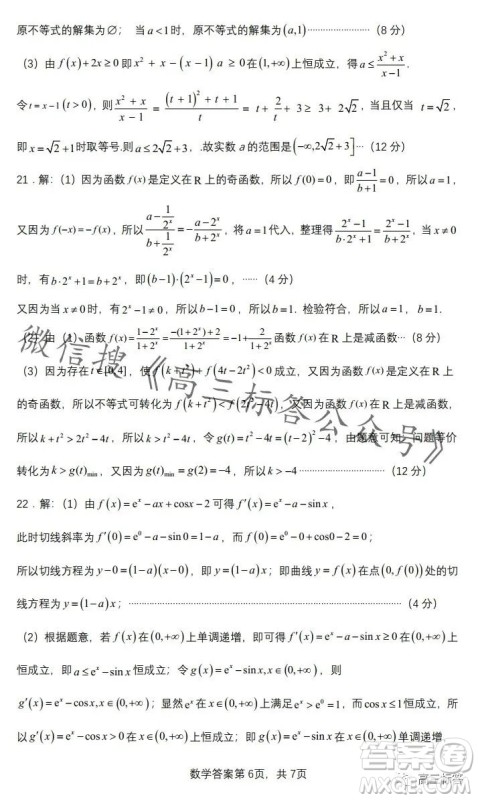 原不等式的解集为∅； 当 a<1 时，原不等式的解集为 (a,1) ⋯⋯⋯⋯⋯（8 分）
（3）由 f(x)+2x≥0 即 x²+x-(x-1)a≥0 在 (1,+∞) 上恒成立，得 a≤(x²+x)/(x-1).
令 t=x-1(t>0)，则 (x²+x)/(x-1) = ((t+1)²+t+1)/t = t+2/t+3≥3+2√2，当且仅当 t=√2，
即 x=√2+1 时取等号.则 a≤2√2+3，.故实数 a 的范围是 (-∞,2√2+3] ⋯（12 分）
21．解：（1）因为函数 f(x) 是定义在 R 上的奇函数，所以 f(0)=0，即 (a-1)/(b+1)=0，所以 a=1，
又因为 f(-x)=-f(x)，所以 (a-1/2ˣ)/(b+1/2ˣ)=-(a-2ˣ)/(b+2ˣ)，将 a=1 代入，整理得 (2ˣ-1)/(b·2ˣ+1)=(2ˣ-1)/(b+2ˣ)，当 x≠0
时，有 b·2ˣ+1=b+2ˣ，即 (b-1)·(2ˣ-1)=0，⋯⋯（4 分）
又因为当 x≠0 时，有 2ˣ-1≠0，所以 b-1=0，所以 b=1. 检验符合，所以 a=1，b=1.
（2）由（1）函数 f(x)=(1-2ˣ)/(1+2ˣ)=(-(1+2ˣ)+2)/(1+2ˣ)=-1+2/(1+2ˣ) 函数 f(x) 在 R 上是减函数⋯（8 分）
（3）因为存在 t∈[0,4]，使 f(k+t²)+f(4t-2t²)<0 成立，又因为函数 f(x) 是定义在 R 上
的奇函数，所以不等式可转化为 f(k+t²)<f(2t²-4t)，又因为函数 f(x) 在 R 上是减函数，
所以 k+t²>2t²-4t，所以 k>t²-4t，令 g(t)=t²-4t=(t-2)²-4，由题意可知，问题等价
转化为 k>g(t)min，又因为 g(t)min=g(2)=-4，所以 k>-4 ⋯⋯⋯⋯⋯（12 分）
22．解：（1）由 f(x)=eˣ-ax+cosx-2 可得 f′(x)=eˣ-a-sinx，
此时切线斜率为 f′(0)=e⁰-a-sin0=1-a，而 f(0)=e⁰-0+cos0-2=0；
所以切线方程为 y-0=(1-a)(x-0)，即 y=(1-a)x；即曲线 y=f(x) 在点 (0,f(0)) 处的切
线方程为 y=(1-a)x；⋯⋯⋯⋯⋯⋯⋯⋯⋯⋯（4 分）
（2）根据题意，若 f(x) 在 (0,+∞) 上单调递增，即可得 f′(x)=eˣ-a-sinx≥0 在 (0,+∞) 上
恒成立，即 a≤eˣ-sinx 恒成立；令 g(x)=eˣ-sinx,x∈(0,+∞)，则
g′(x)=eˣ-cosx,x∈(0,+∞)；显然 eˣ 在 x∈(0,+∞) 上满足 eˣ>e⁰=1，而 cosx≤1 恒成立，
所以 g′(x)=eˣ-cosx>0 在 x∈(0,+∞) 上恒成立，即 g(x)=eˣ-sinx 在 x∈(0,+∞) 单调递增.
数学答案第 6页，共 7页
微信搜《高三标答公众号》
高三标答